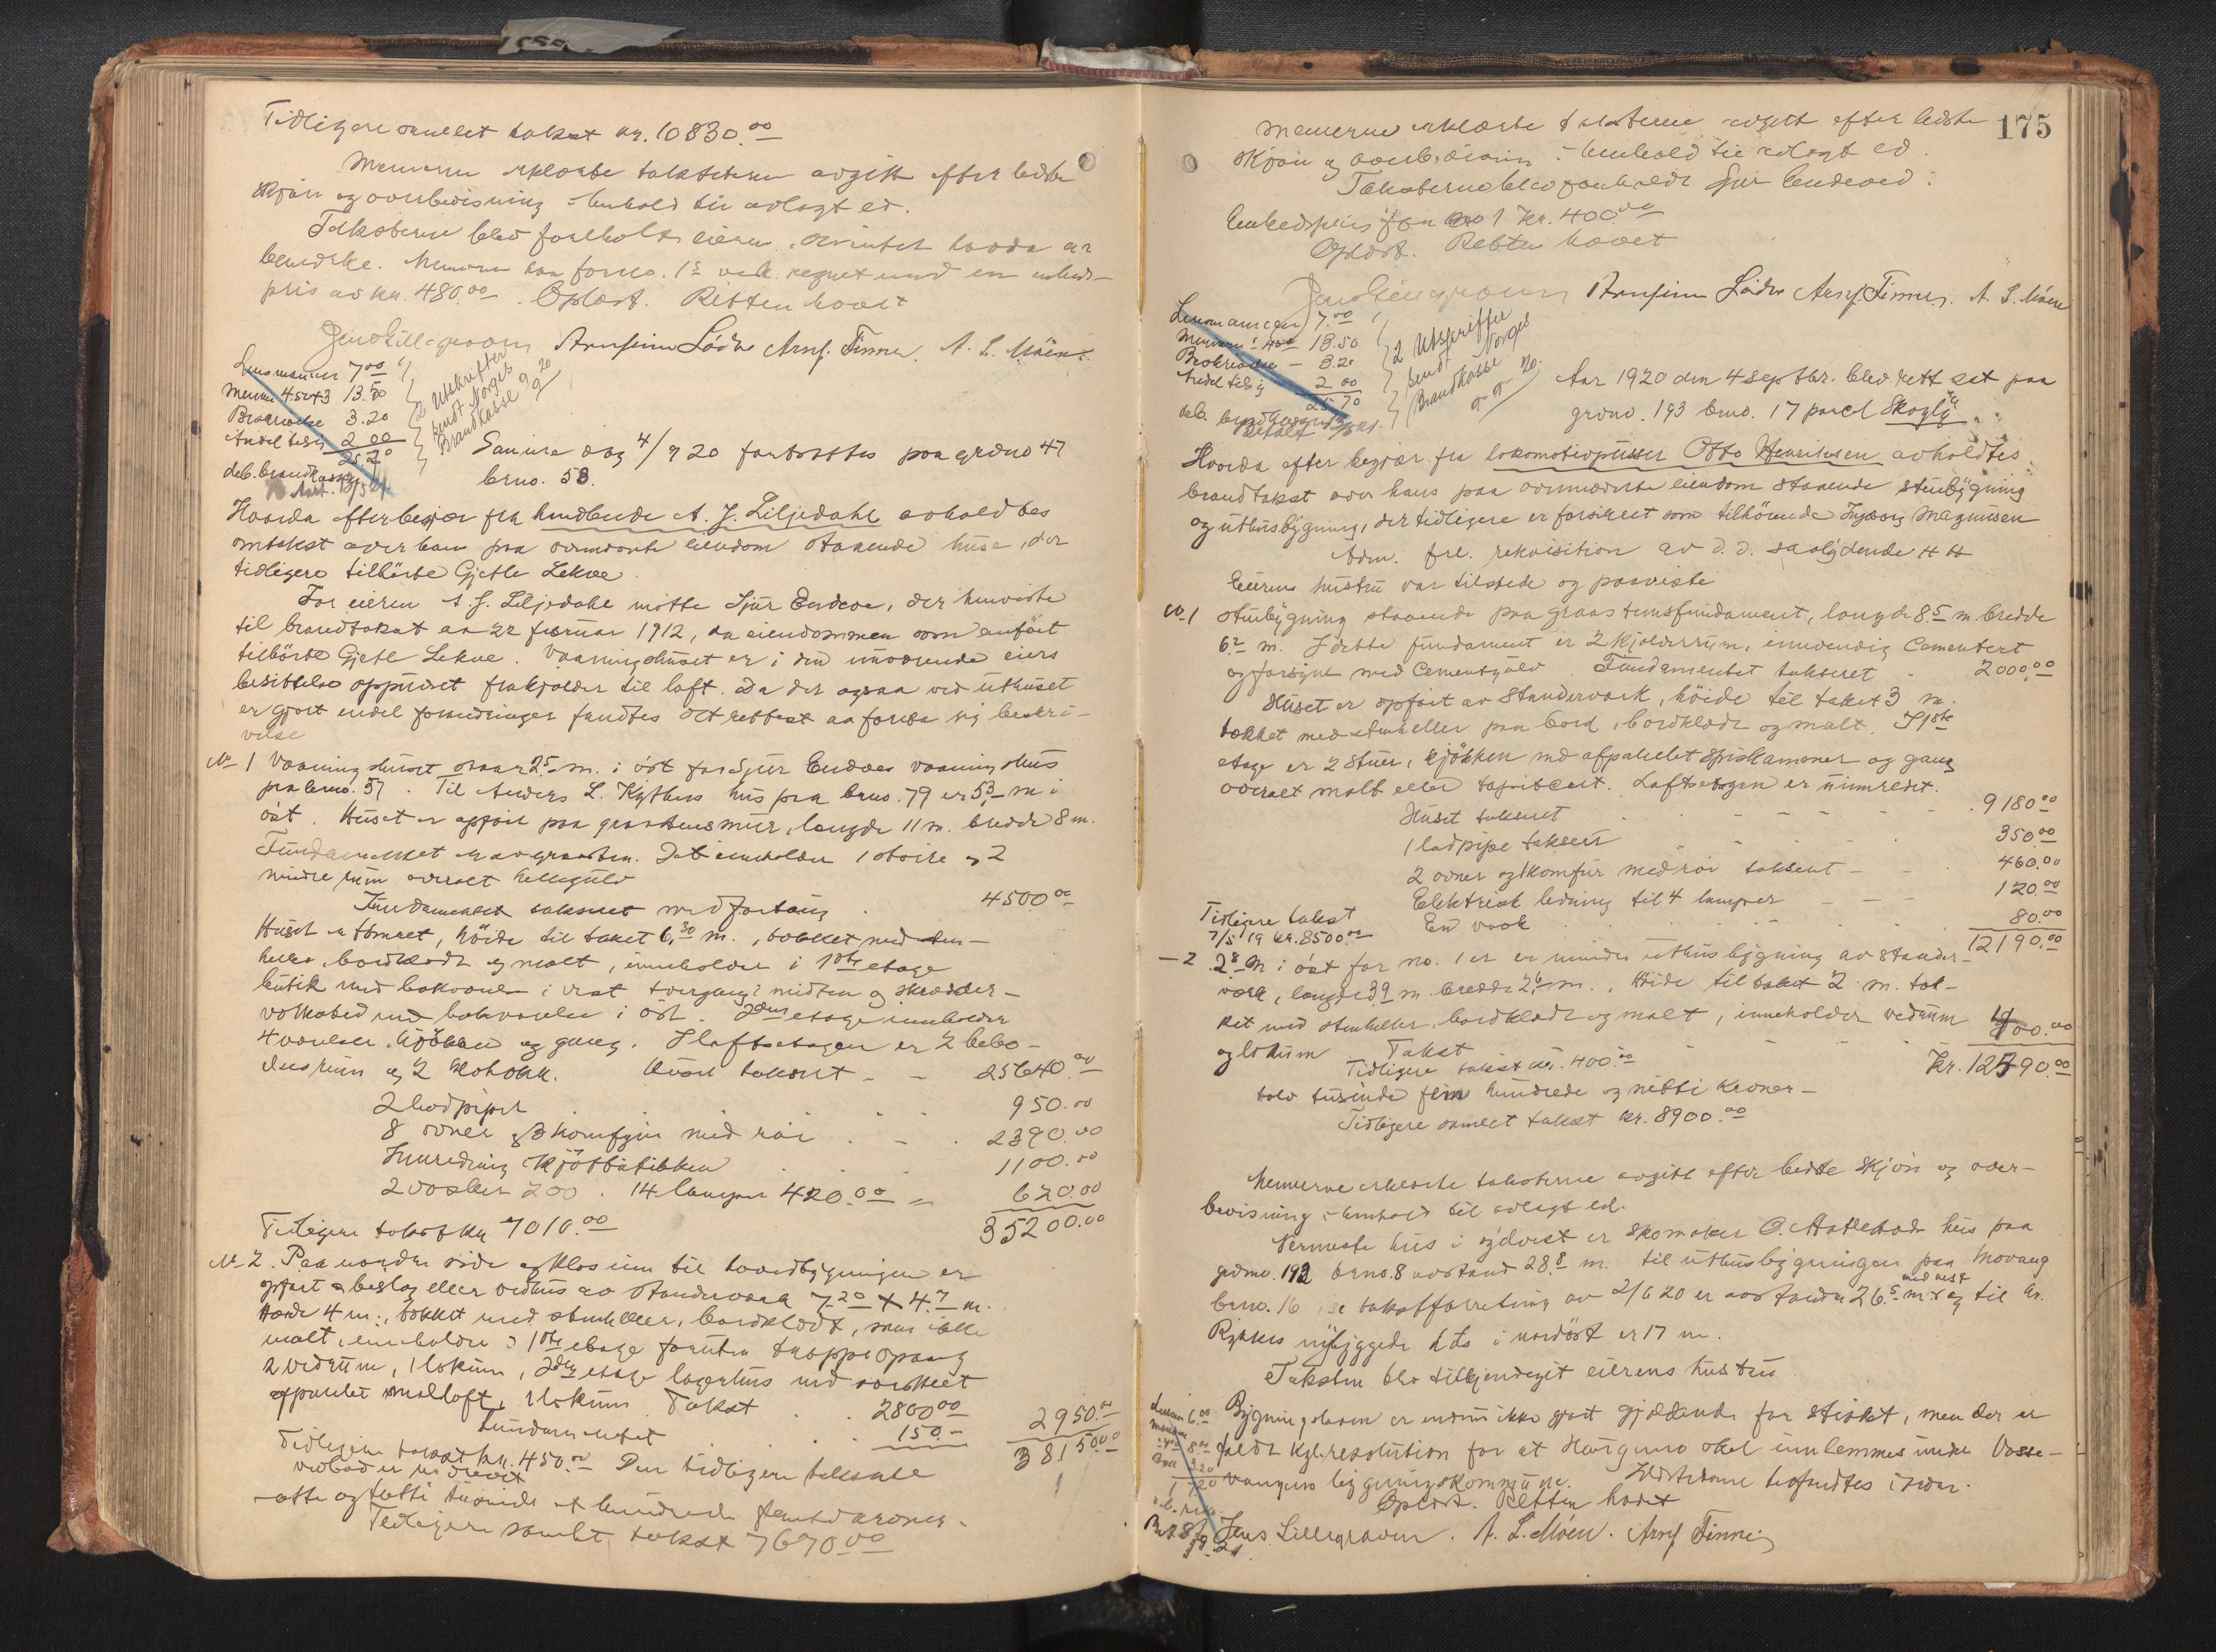 Tidligere samlet takst kr. 10830.00
Mennerne erklærte taksterne avgitt efter bedste
skjøn og overbevisning i henhold til avlagt ed.
Taksterne blev foreholdt eieren, som intet hadde at
bemerke. Mennerne har for no. 1 regnet med en enheds-
pris av kr. 480.00. Oplæst. Retten hævet
Jens Lillegraven Arnfinn Lødve Arnf. Finne. A. L. Möen.
Lensmannen 7.00
Mennene 4.50x3 13.50
Beskrivelse 3.20
Andel tilsig 2.00
25.70
deb. brandkassen
2 Utskrifter
sendt Norges
Brandkasse 9/9 20
Samme dag 4/9 20 fortsattes paa grdno 47
brno. 58.
Hvorda efter begjær fra handlende A. J. Liljedahl avholdtes
omtakst over hans paa ovennævnte eiendom staaende huse, der
tidligere tilhørte Gjetle Lekve.
For eieren A. J. Liljedahl møtte Sjur Endeve, der henviste
til brandtakst av 22 februar 1912, da eiendommen som anført
tilhørte Gjetle Lekve. Vaaningshuset er i den nuværende eiers
besittelse oppusset fra kjælder til loft. Da der ogsaa ved uthuset
er gjort endel forandringer fandtes det rettest aa foreta ny beskri-
velse
No 1 Vaaningshuset staar 25 m. i øst for Sjur Endeves vaaningshus
paa brno. 57. Til Anders L. Kythes hus paa brno. 79 er 5.3 m i
øst. Huset er opført paa graastensmur, længde 11 m. bredde 8 m.
Fundamentet er av graasten. Det inneholder 1 større og 2
mindre rum overalt hellegulv
Fundamentet taksert med fortaug 4500.00
Huset er tømret, høide til taket 6.30 m., tækket med sten-
heller, bordklædt og malt, inneholder i 1ste etage
butik med bakværelse i vest, tvergang i midten og skrædder-
verksted med bakværelse i øst. 2den etage inneholder
4 værelser, kjøkken og gang. I loftsetagen er 2 bebo-
elsesrum og 2 klæskott. Huset taksert - - 25640.00
2 ladpiper 950.00
8 ovner og 3 komfyrer med rør 2390.00
Innredning i kjøtbutikken 1100.00
2 vasker 200. 14 lamper 420.00 = 620.00
Tidligere takst kr 7010.00 35200.00
No 2. Paa nordre side og klos inn til hovedbygningen er
opført et beslag eller vedhus av standerverk 7.20 x 4.7 m.
Høide 4 m., tækket med stenheller, bordklædt, men ikke
malt, inneholder i 1ste etage foruten trappeopgang
2 vedrum, 1 lokum, 2den etage lagerhus med
avpanelet smalloft, 1 lokum. Takst 2800.00
Fundamentet 150.- 2950.00
Tidligere takst kr. 450.00 Den tidligere takserte 38150.00
vedbod er nedrevet
-otte og tretti tusinde et hundrede femti kroner-
Tidligere samlet takst 7670.00
175
Mennerne erklærte taksterne avgitt efter bedste
skjøn og overbevisning i henhold til avlagt ed.
Taksterne blev foreholdt Sjur Endeved:
Enhedspris for no 1 kr. 400.00
Oplæst. Retten hævet
Jens Lillegraven Arnfinn Lødve Arnf. Finne. A. L. Möen
Lensmannen 7.00
Mennene 13.50
Beskrivelse - 3.20
Andel tilsig 2.00
25.70
deb. brandkassen
Betalt
2 Utskrifter
sendt Norges
Brandkasse
9/9 20.
Aar 1920 den 4 septbr. blev rett sat paa
grdno. 193 brno. 17 parcel Skogly.
Hvorda efter begjær fra lokomotivpusser Otto Henriksen avholdtes
brandtakst over hans paa ovennævnte eiendom staaende stuebygning
og uthusbygning, der tidligere er forsikret som tilhørende Ingeborg Magnussen
Adm. frl. rekvisition av d. d. saalydende # #
Eierens hustru var tilstede og paaviste
No 1 Stuebygning staaende paa graastensfundament, længde 8.5 m. bredde
6.2 m. I dette fundament er 2 kjælderrum, innvendig cementert
og forsynt med cementgulv. Fundamentet taksert - 2000.00
Huset er opført av standerverk, høide til taket 3 m.
tækket med stenheller paa bord, bordklædt og malt. I 1ste
etage er 2 stuer, kjøkken med afpanelet spiskammer og gang
overalt malt eller tapetsert. Loftsetagen er uinnredet.
Huset taksert 9180.00
1 ladpipe taksert 350.00
2 ovner og 1 komfur med rør taksert - 460.00
Elektrisk ledning til 4 lamper 120.00
Tidligere takst
7/5 19 kr. 8500.00
En vask 80.00
12190.00
- 2 2.8 m i øst for no. 1 er en mindre uthusbygning av stander-
værk, længde 3.9 m bredde 2.6 m., Høide til taket 2 m. tæk-
ket med stenheller, bordklædt og malt, inneholder vedrum
og lokum Takst 400.00
Tidligere takst kr. 400.00 Kr. 12590.00
tolv tusinde fem hundrede og nitti kroner-
Tidligere samlet takst kr. 8900.00
Mennerne erklærte taksterne avgitt efter bedste skjøn og over-
bevisning i henhold til avlagt ed.
Nærmeste hus i sydvest er skomaker O. hus paa
grdno. 192 brno. 8 avstand 28.8 m. til uthusbygningen paa Movang
brno. 16, se takstforretning av 2/6 20 er avstanden 26.5 m med vest og til Kr.
Rykkes nybyggede hus i nordøst er 17 m.
Taksten blev tilkjendegit eierens hustru
Bygningsloven er endnu ikke gjort gjældende for strøket, men der er
faldt kgl. resolution for at skal innlemmes under Vosse-
vangens bygningskommune. Ildstedene befandtes i orden.
Oplæst. Retten hævet
Jens Lillegraven. A. L. Möen. Arnf Finne